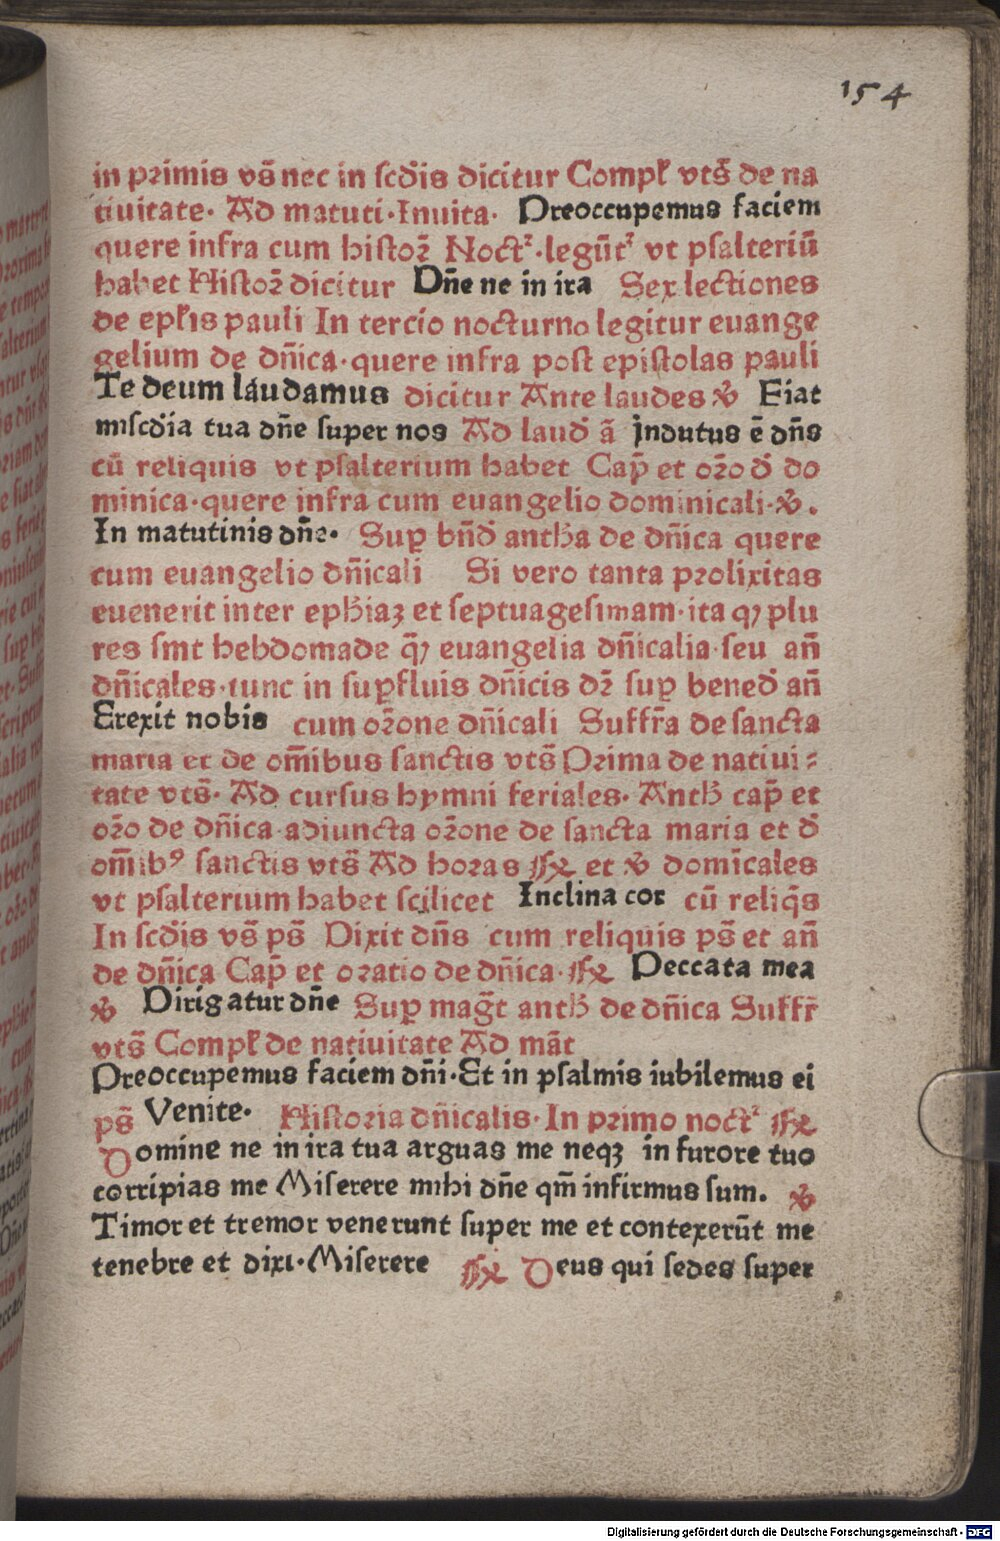 154
in primis vs̃ nec in scd̉is dicitur Compl̃ vts̃ de na
tiuitate· Ad matuti·Inuita· Preoccupemus faciem
quere infra cum histor̃ Noctꝛ·legũtꝛ vt psalteriũ
habet Histor̃ dicitur Dñe ne in ira Sex lectiones
de epl̃is pauli In tercio nocturno legitur euange
gelium de dñica·quere infra post epistolas pauli
Te deum laudamus dicitur Ante laudes ℣ Fiat
miscd̉ia tua dñe super nos Ad laud̉ ã Indutus ẽ dñs
cũ reliquis vt psalterium habet Cap̃ et oꝛ̃o d̉ do
minica·quere infra cum euangelio dominicali·℣.
In matutinis dñe· Suꝑ bñd̉ antħa de dñica quere
cum euangelio dñicali Si vero tanta prolixitas
euenerit inter epħiaꝫ et septuagesimam·ita qꝫ plu
res smt hebdomade q̃ꝫ euangelia dñicalia·seu añ
dñicales·tunc in suꝑfluis dñicis dꝛ̃ suꝑ bened̉ añ
Erexit nobis cum oꝛ̃one dñicali Suffꝛ̃a de sancta
maria et de om̃ibus sanctis vts̃ Prima de natiui⸗
tate vts̃· Ad cursus hymni feriales· Antħ cap̃ et
oꝛ̃o de dñica·adiuncta oꝛ̃one de sancta maria et d̉
om̃ibꝰ sanctis vts̃ Ad horas ℟ et ℣ domĩcales
vt psalterium habet scilicet Inclina cor cũ reliq̃s
In scd̉is vs̃ ps̃ Dixit dñs cum reliquis ps̃ et añ
de dñica Cap̃ et oratio de dñica·℟ Peccata mea
℣ Dirigatur dñe Suꝑ mag̃t antħ de dñica Suffꝛ̃
vts̃ Compl̃ de natiuitate Ad mãt
Preoccupemus faciem dñi·Et in psalmis iubilemus ei
ps̃ Venite· Historia dñicalis·In primo noctꝛ ℟
Domine ne in ira tua arguas me neqꝫ in furore tuo
corripias me Miserere mihi dñe qm̃ infirmus sum. ℣
Timor et tremor venerunt super me et contexerũt me
tenebre et dixi·Miserere ℟ Deus qui sedes super
Digitalisierung gefördert durch die Deutsche Forschungsgemeinschaft - DFG